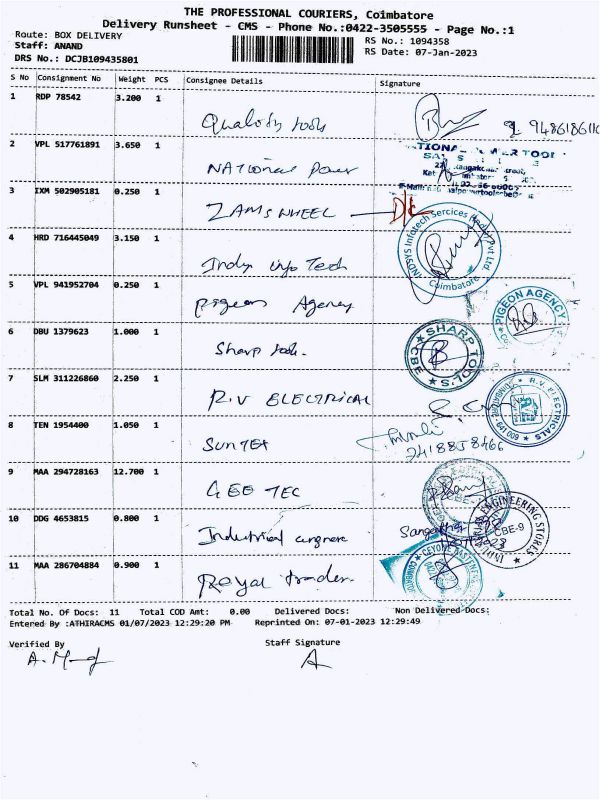 THE PROFESSIONAL COURIERS, Coimbatore
Delivery Runsheet - CMS - Phone No.:0422-3505555 - Page No.:1
Route: BOX DELIVERY
RS No.: 1094358
Staff: ANAND
RS Date: 07-Jan-2023
DRS No.: DCJB109435801
S No Consignment No Weight PCS Consignee Details Signature
1 RDP 78542 3.200 1 Quality tools
2 VPL 517761891 3.650 1 NATional Power
3 IXM 502905181 0.250 1 ZAMS WHEEL D/C
4 HRD 716445049 3.150 1 Indy info Tech
INDSYS Infotech Services (India) Pvt Ltd
Coimbatore
5 VPL 941952704 0.250 1 pigeon Agency
PIGEON AGENCY
6 DBU 1379623 1.000 1 Sharp tools.
SHARP TOOLS CBE
7 SLM 311226860 2.250 1 R.V ELECTRICAL
R.V. ELECTRICALS
8 TEN 1954400 1.050 1 SUNTEX
9 MAA 294728163 12.700 1 GEE TEC
10 DDG 4653815 0.800 1 Industrial
ENGINEERING STORES CBE-9
11 MAA 286704884 0.900 1 Royal traders
Total No. Of Docs: 11 Total COD Amt: 0.00 Delivered Docs: Non Delivered Docs:
Entered By :ATHIRACMS 01/07/2023 12:29:20 PM Reprinted On: 07-01-2023 12:29:49
Verified By Staff Signature